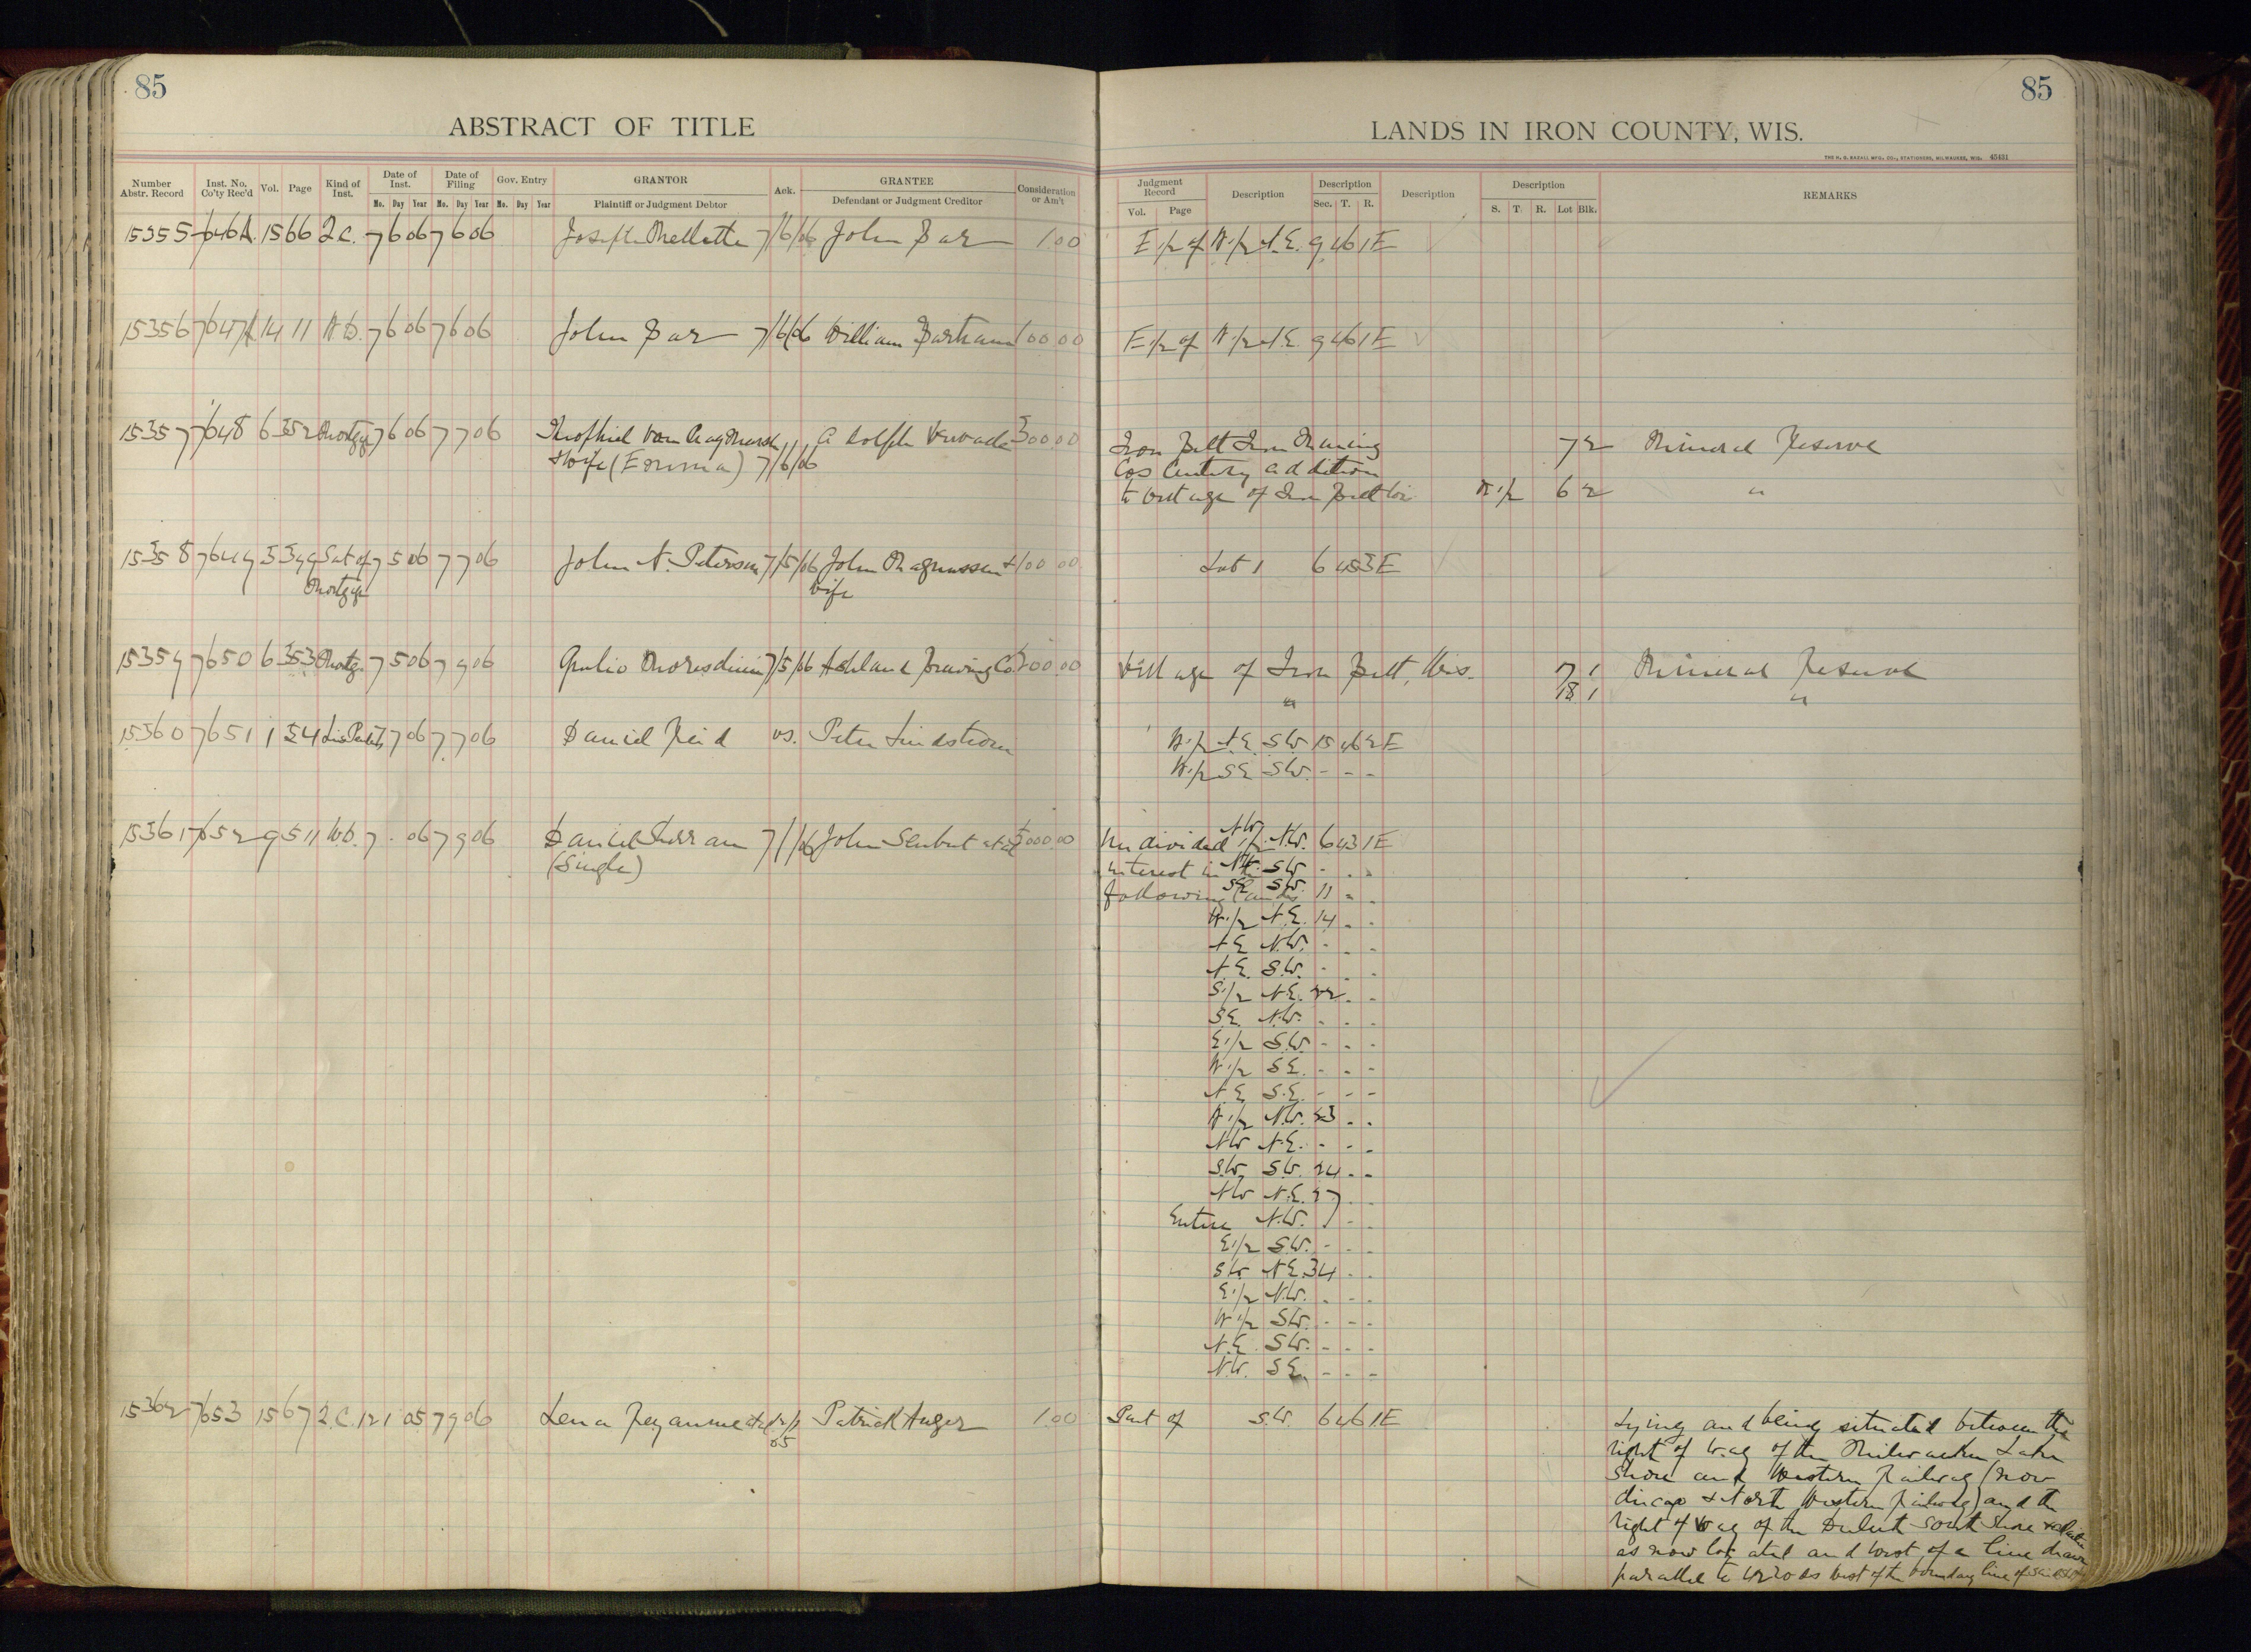 85
85
ABSTRACT OF TITLE
LANDS IN IRON COUNTY, WIS.
THE H. G. RAZALL MFG. CO., STATIONERS, MILWAUKEE, WIS. 45431
Number Abstr. Record Inst. No. Co'ty Rec'd Vol. Page Kind of Inst. Date of Inst. Mo. Day Year Date of Filing Mo. Day Year Gov. Entry Mo. Day Year GRANTOR Plaintiff or Judgment Debtor Ack. GRANTEE Defendant or Judgment Creditor Consideration or Am't
Judgment Record Vol. Page Description Description Sec. T. R. Description Description S. T. R. Lot Blk. REMARKS
15355 7646A 15 66 2.C. 7 6 06 7 6 06 Joseph Mellotte 7/6/06 John Bar 1.00 E 1/2 of W 1/2 N.E. 9 46 1E
15356 7647A 14 11 W.D. 7 6 06 7 6 06 John Bar 7/6/06 William Bartram 100.00 E 1/2 of W 1/2 N.E. 9 46 1E
15357 7648 6 352 Mortgage 7 6 06 7 7 06 300.00 Iron Belt Iron Mining 7 2 Mineral Reserve
& Wife (Emma) 7/6/06 Cos Century addition
to Village of Iron Belt Wis. W 1/2 6 2 "
15358 7649 5 399 Sat of 7 5 06 7 7 06 John N. Peterson 7/5/06 John Magnussen & 100.00 Lot 1 6 45 3E
Mortgage Wife
15359 7650 6 353 Mortg. 7 5 06 7 9 06 Giulio 7/5/06 Ashland Brewing Co. 00.00 Village of Iron Belt, Wis. 7 1 Mineral Reserve
" 18 1 "
15360 7651 1 54 Lis Pendens 7 7 06 7 7 06 Daniel Reid vs. Peter Lindstrom W 1/2 N.E. S.W. 15 46 2E
W 1/2 SE SW. - - -
15361 7652 9 511 W.D. 7 . 06 7 9 06 Daniel 7/ /06 John et al 000.00 Undivided 1/2 NW N.W. 6 43 1E
(Single) interest in the NW. SW - - -
following lands SE SW. 11 - -
W 1/2 N.E. 14 - -
N.E N.W. - - -
N.E. S.W. - - -
S 1/2 N.E. 22 - -
S.E. N.W. - - -
E 1/2 S.W. - - -
W 1/2 S.E. - - -
N.E. S.E. - - -
W 1/2 N.W. 23 - -
NW N.E. - - -
S.W. S.W. 24 - -
NW N.E. 27 - -
Entire N.W. - - -
E 1/2 S.W. - - -
S.W. N.E. 34 - -
E 1/2 N.W. - - -
W 1/2 S.W. - - -
N.E. S.W. - - -
N.W. S.E. - - -
15362 7653 15 67 2.C. 12 1 05 7 9 06 Lena et al 12/1/05 Patrick Auger 1.00 Part of S.W. 6 46 1E Lying and being situated between the
right of way of the Milwaukee Lake
Shore and Western Railway (now
Chicago & North Western Railway) and the
right of way of the Duluth South Shore &
as now located and West of a line drawn
parallel to West of the boundary line of said